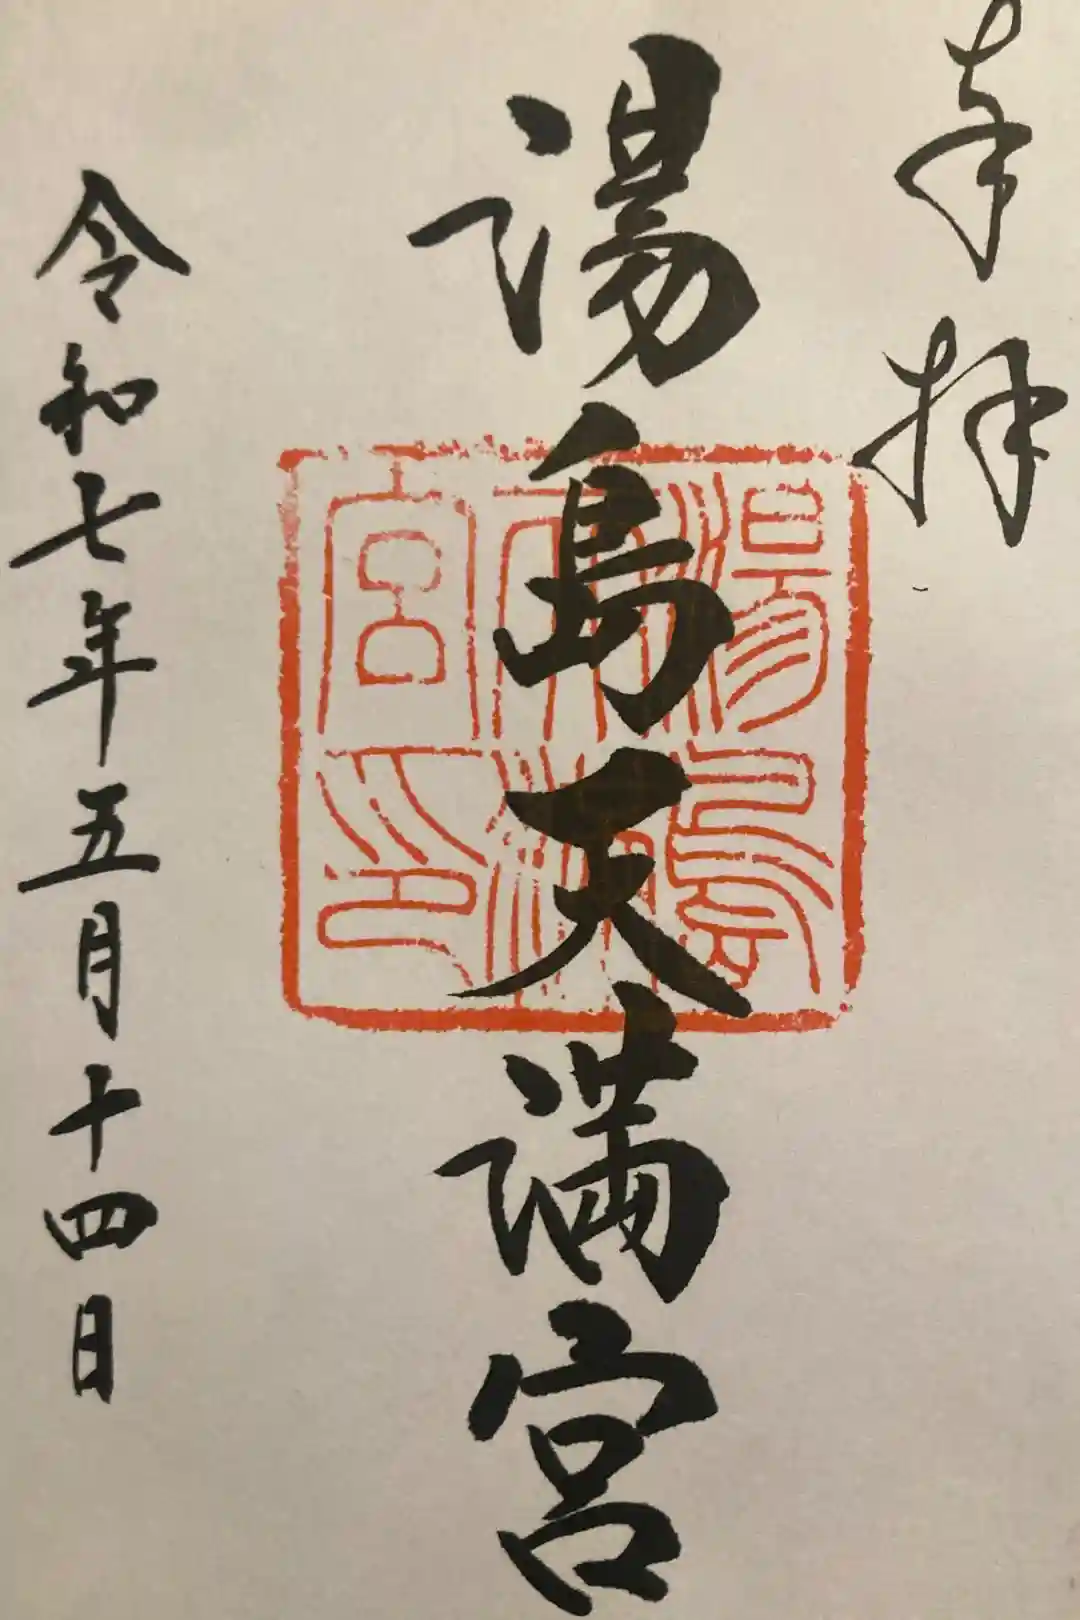 奉拝
湯島天満宮
令和七年五月十四日
湯島
天満
宮印